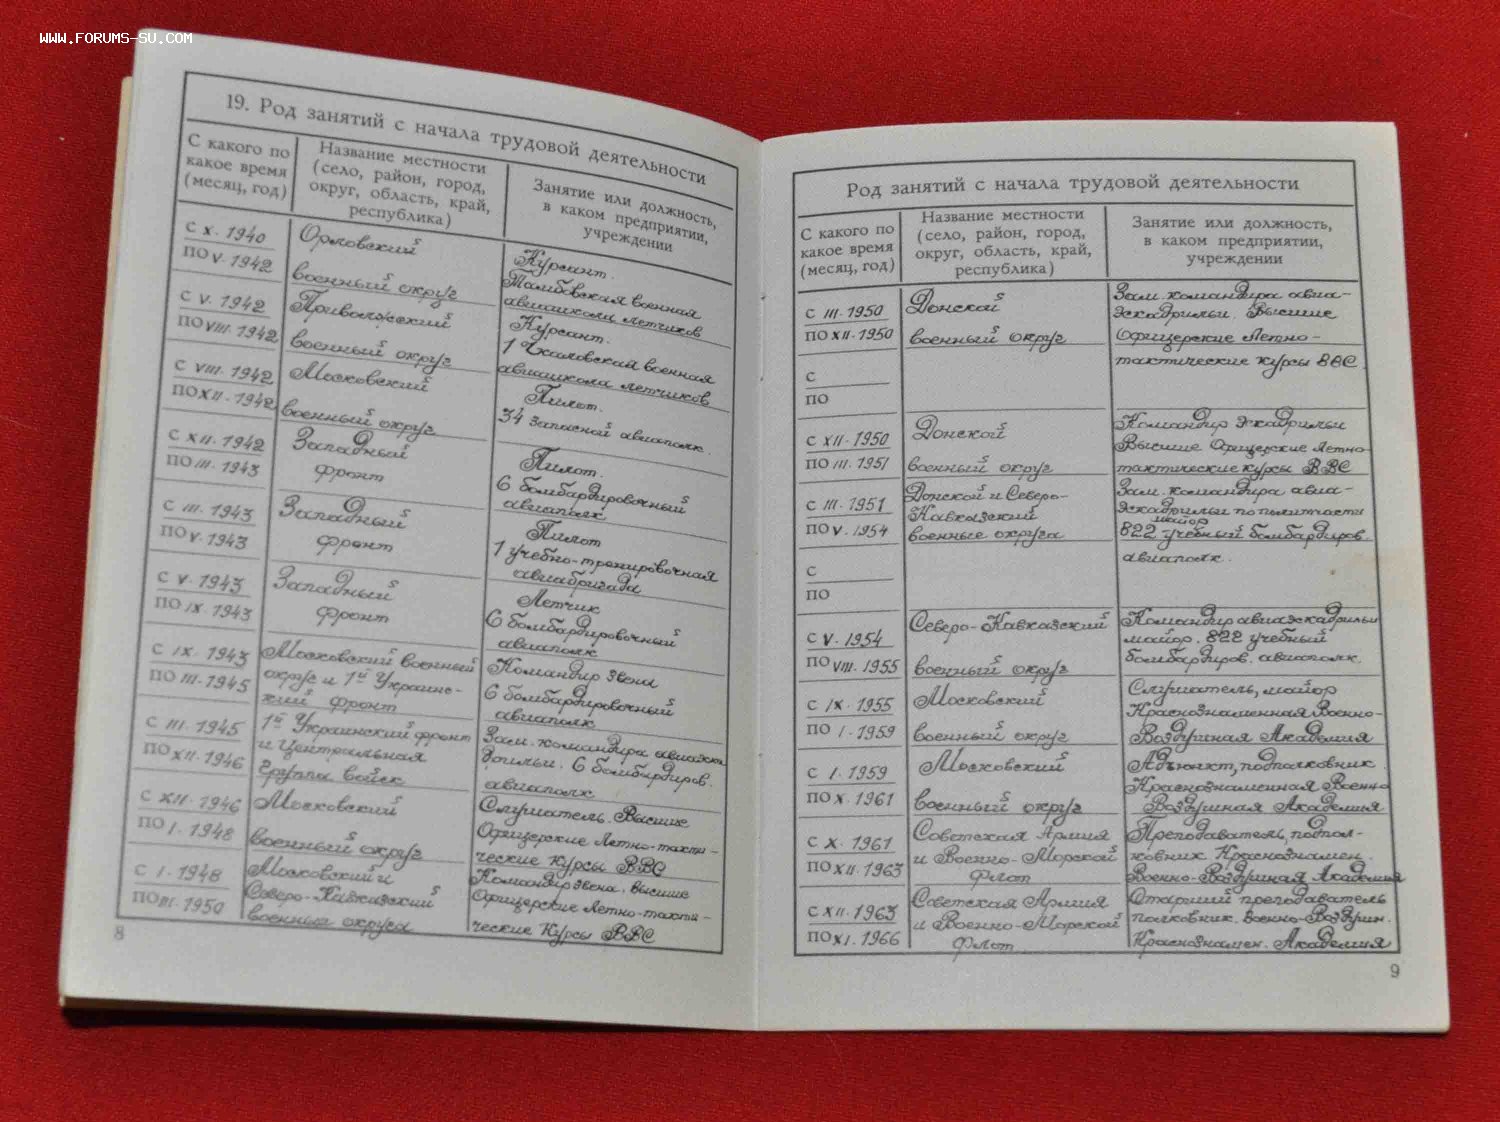 WWW.FORUMS-SU.COM
19. Род занятий с начала трудовой деятельности
С какого по
какое время
(месяц, год)
Название местности
(село, район, город,
округ, область, край,
республика)
Занятие или должность,
в каком предприятии,
учреждении
С X. 1940
ПО V. 1942
Орловский
военный округ
Курсант.
Тамбовская военная
авиашкола летчиков
С V. 1942
ПО VIII. 1942
Приволжский
военный округ
Курсант.
1 Чкаловская военная
авиашкола летчиков
С VIII. 1942
ПО XII. 1942
Московский
военный округ
Пилот.
34 запасной авиаполк.
С XII. 1942
ПО III. 1943
Западный
фронт
Пилот
6 бомбардировочный
авиаполк
С III. 1943
ПО V. 1943
Западный
фронт
Пилот
1 учебно-тренировочная
авиабригада
С V. 1943
ПО IX. 1943
Западный
фронт
Летчик
6 бомбардировочный
авиаполк
С IX. 1943
ПО III. 1945
Московский военный
округ и 1й Украинс-
кий фронт
Командир звена
6 бомбардировочный
авиаполк
С III. 1945
ПО XII. 1946
1й Украинский фронт
и Центральная
группа войск
Зам. командира авиаэск
дрильи. 6 бомбардиров.
авиаполк
С XII. 1946
ПО I. 1948
Московский
военный округ
Слушатель. Высшие
Офицерские Летно-такти-
ческие Курсы ВВС
С I. 1948
ПО III. 1950
Московский и
Северо-Кавказский
военные округа
Командир звена. Высшие
Офицерские Летно-такти-
ческие Курсы ВВС
8
Род занятий с начала трудовой деятельности
С какого по
какое время
(месяц, год)
Название местности
(село, район, город,
округ, область, край,
республика)
Занятие или должность,
в каком предприятии,
учреждении
С III. 1950
ПО XII. 1950
Донской
военный округ
Зам. командира авиа-
эскадрильи. Высшие
Офицерские Летно-
тактические курсы ВВС.
С
ПО
С XII. 1950
ПО III. 1951
Донской
военный округ
Командир эскадрильи
Высшие Офицерские Летно-
тактические курсы ВВС
С III. 1951
ПО V. 1954
Донской и Северо-
Кавказский
военные округа
Зам. командира авиа-
эскадрильи по политчасти
майор
822 учебный бомбардиров.
авиаполк.
С
ПО
С V. 1954
ПО VIII. 1955
Северо-Кавказский
военный округ
Командир авиаэскадрильи
майор. 822 учебный
бомбардиров. авиаполк.
С IX. 1955
ПО I. 1959
Московский
военный округ
Слушатель, майор
Краснознаменная Военно-
Воздушная Академия
С I. 1959
ПО X. 1961
Московский
военный округ
Адъюнкт, подполковник.
Краснознаменная Военно
Воздушная Академия
С X. 1961
ПО XII. 1963
Советская Армия
и Военно-Морской
Флот
Преподаватель, подпол-
ковник Краснознамен.
Военно-Воздушная Академия
С XII. 1963
ПО XI. 1966
Советская Армия
и Военно-Морской
Флот
Старший преподаватель
полковник. Военно-Воздушн.
Краснознамен. Академия
9